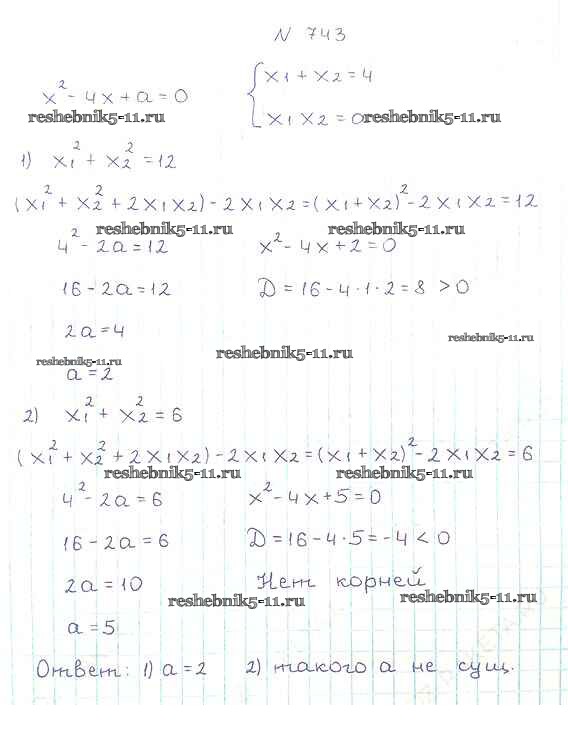 N 743
x² - 4x + a = 0
{ x1 + x2 = 4
x1 x2 = a
reshebnik5-11.ru reshebnik5-11.ru
1) x1² + x2² = 12
(x1² + x2² + 2x1x2) - 2x1x2 = (x1 + x2)² - 2x1x2 = 12
reshebnik5-11.ru reshebnik5-11.ru
4² - 2a = 12 x² - 4x + 2 = 0
16 - 2a = 12 D = 16 - 4·1·2 = 8 > 0
2a = 4
reshebnik5-11.ru reshebnik5-11.ru reshebnik5-11.ru
a = 2
2) x1² + x2² = 6
(x1² + x2² + 2x1x2) - 2x1x2 = (x1 + x2)² - 2x1x2 = 6
reshebnik5-11.ru reshebnik5-11.ru
4² - 2a = 6 x² - 4x + 5 = 0
16 - 2a = 6 D = 16 - 4·5 = -4 < 0
2a = 10 Нет корней
reshebnik5-11.ru reshebnik5-11.ru
a = 5
Ответ: 1) a = 2 2) такого а не сущ.